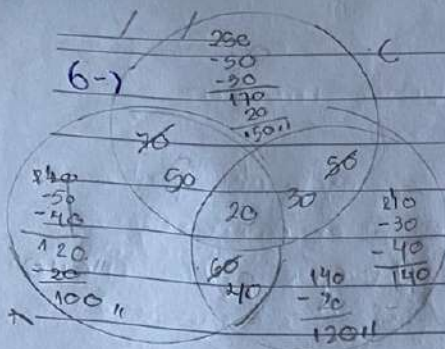 250
-50
-30
170
20
150 //
C
6-)
70
50
50
30
20
60
40
210
-50
-40
120
-20
100 //
210
-30
-40
140
140
-20
120 //
A